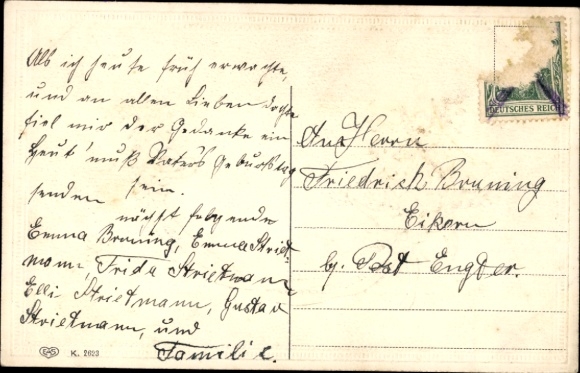 Als ich heute früh erwachte,
und an allen Lieben dachte
fiel mir der Gedanke ein
Heut' muß Vaters Geburtstag
sein.
senden
nächst folgende
Emma Bruning, Emma Striet-
mann, Frida Strietmann
Elli Strietmann, Gustav
Strietmann, und
Familie.
K. 2623
DEUTSCHES REICH
An Herrn
Friedrich Bruning
Eikorn
b/. Post Engter.